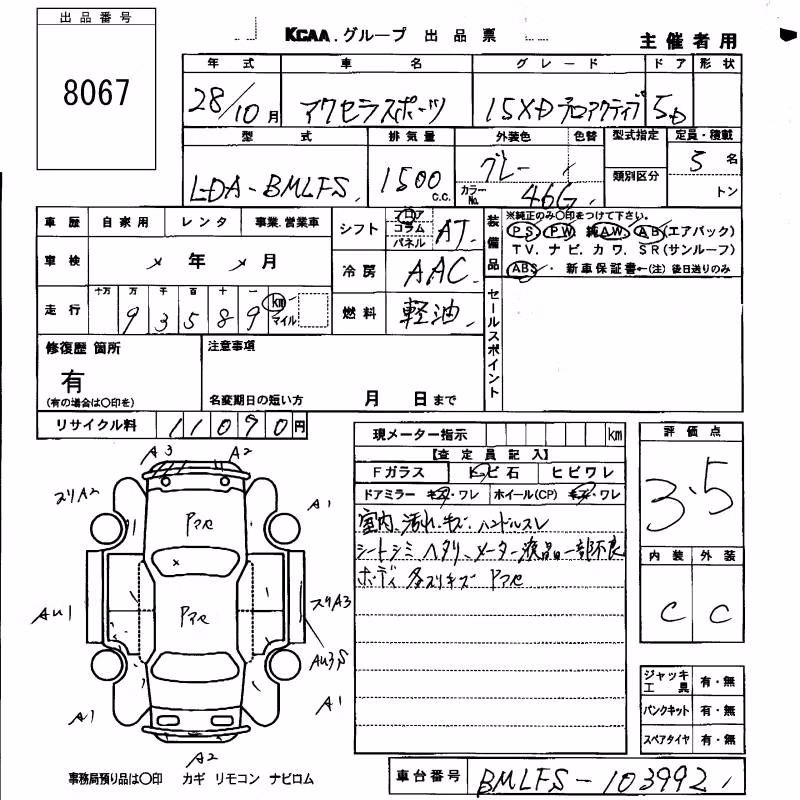 出品番号
8067
KCAA.グループ 出品票
主催者用
年式 車名 グレード ドア 形状
28/10月 アクセラスポーツ 15XD プロアクティブ 5D
型式 排気量 外装色 色替 型式指定 定員・積載
LDA-BMLFS 1500 c.c. グレー カラーNo. 46G 類別区分 5名
トン
車歴 自家用 レンタ 事業.営業車
車検 年 月
走行 十万 万 千 百 十 一
93589 km マイル
シフト フロア コラム パネル AT
冷房 AAC
燃料 軽油
装備品
※純正のみ○印をつけて下さい。
PS PW 純AW AB(エアバック)
TV. ナビ. カワ. SR(サンルーフ)
ABS. 新車保証書←(注) 後日送りのみ
セールスポイント
修復歴 箇所
有
(有の場合は○印を)
注意事項
名変期日の短い方 月 日まで
リサイクル料 11090円
現メーター指示 km
【査定員記入】
Fガラス トビ石 ヒビワレ
ドアミラー キズ・ワレ ホイール(CP) キズ・ワレ
室内、汚れ、キズ、ハンドルスレ
シートシミ ヘタリ、メーター液晶一部不良
ボディ 各スリキズ Pアセ
評価点
3.5
内装 外装
C C
A3 A2
スリA2 A1
Pアセ
Pアセ
AU1 スリA3
AU3,S
A1 A1
A2
ジャッキ工具 有・無
パンクキット 有・無
スペアタイヤ 有・無
事務局預り品は○印 カギ リモコン ナビロム
車台番号 BMLFS-103992